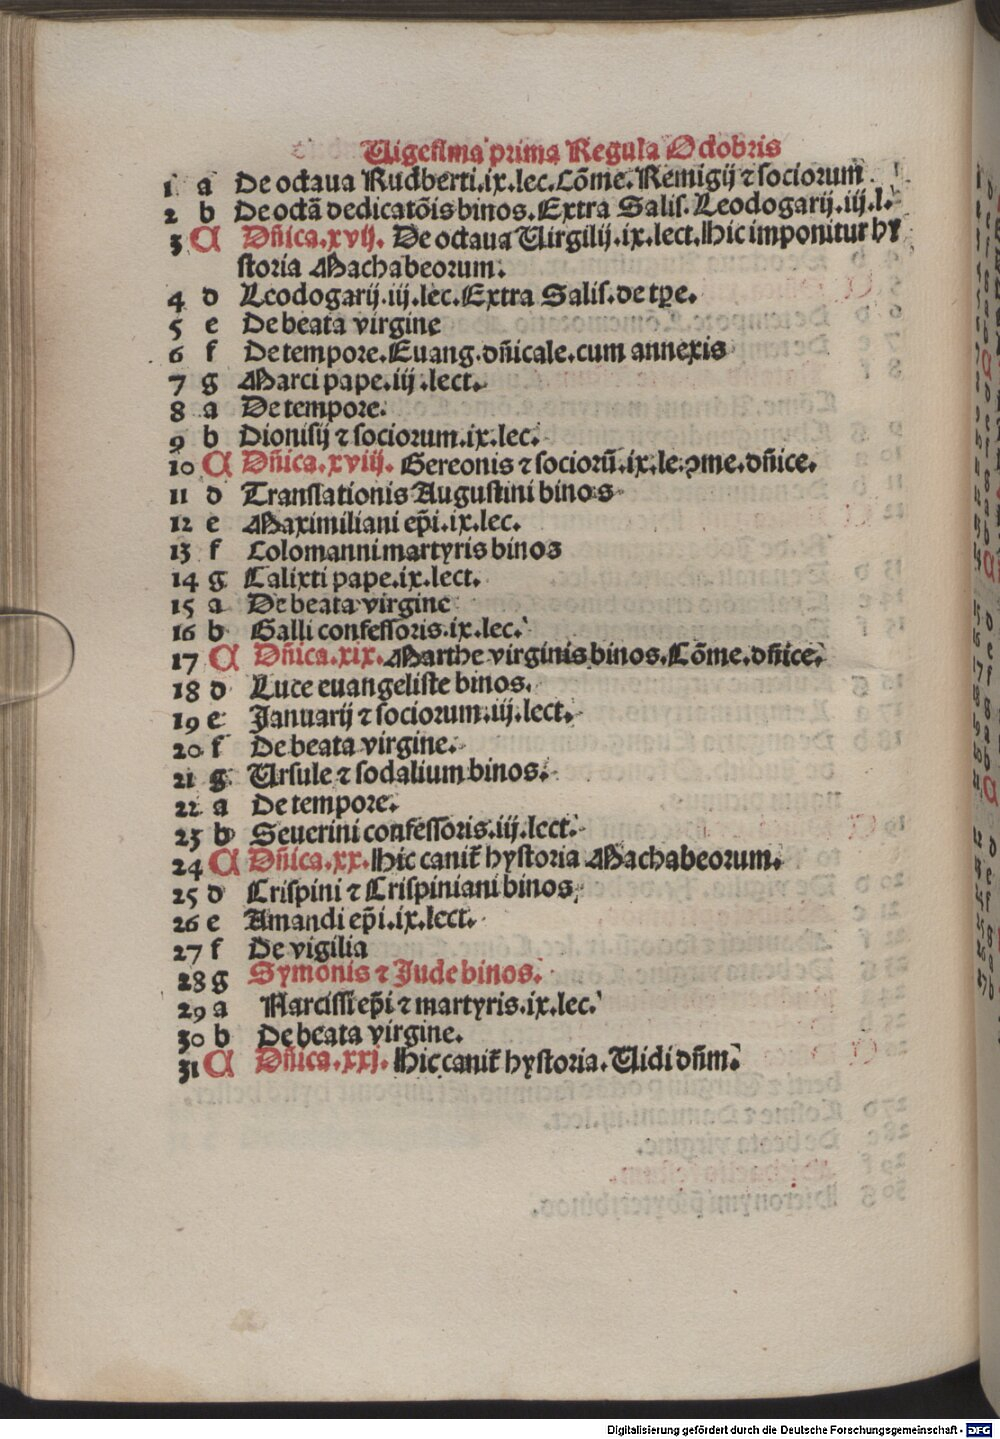 Uigesima prima Regula Octobris
1 a De octaua Rudberti.ix.lec.Cōme.Remigij ⁊ sociorum
2 b De octā dedicatōis binos.Extra Salis.Leodogarij.iij.l.
3 A Dñica.xvij. De octaua Uirgilij.ix.lect.Hic imponitur hy
storia Machabeorum.
4 d Leodogarij.iij.lec.Extra Salis.de tꝑe.
5 e De beata virgine
6 f De tempore.Euang.dñicale.cum annexis
7 g Marci pape.iij.lect.
8 a De tempore.
9 b Dionisij ⁊ sociorum.ix.lec.
10 A Dñica.xviij. Gereonis ⁊ sociorū.ix.le.ꝯme.dñice.
11 d Translationis Augustini binos
12 e Maximiliani ep̄i.ix.lec.
13 f Colomanni martyris binos
14 g Calixti pape.ix.lect.
15 a De beata virgine
16 b Galli confessoris.ix.lec.
17 A Dñica.xix.Marthe virginis binos.Cōme.dñice.
18 d Luce euangeliste binos.
19 e Januarij ⁊ sociorum.iij.lect.
20 f De beata virgine.
21 g Ursule ⁊ sodalium binos.
22 a De tempore.
23 b Seuerini confessoris.iij.lect.
24 A Dñica.xx.Hic canit̄ hystoria Machabeorum.
25 d Crispini ⁊ Crispiniani binos
26 e Amandi ep̄i.ix.lect.
27 f De vigilia
28 g Symonis ⁊ Jude binos.
29 a Narcissi ep̄i ⁊ martyris.ix.lec.
30 b De beata virgine.
31 A Dñica.xxj. Hic canit̄ hystoria. Uidi dñm.
Digitalisierung gefördert durch die Deutsche Forschungsgemeinschaft - DFG